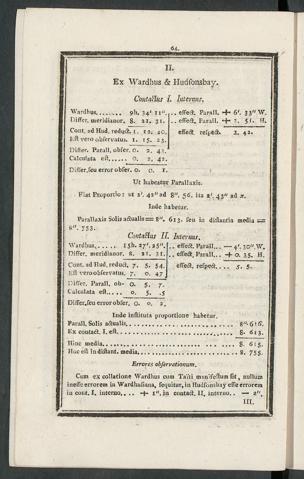 64.
II.
Ex Wardhus & Hudsonsbay.
Contactus I. Internus.
Wardhus,....... 9h. 34' 11".. effect. Parall. + 6'. 33" W.
Differ. meridianor. 8. 21. 31. .. effect. Parall. + 1. 51. H.
Cont. ad Hud. reduct. 1. 12. 40. effect. respect. 2. 42.
Est vero observatus. 1. 15. 23.
Differ. Parall. obser. 0. 2. 43.
Calculata est..... 0. 2. 42.
Differ, seu error obser. 0. 0. 1.
Ut habeatur Parallaxis.
Fiat Proportio: ut 2'. 42" ad 8". 56, ita 2'. 43" ad x.
Inde habetur.
Parallaxis Solis actualis = 8". 613. seu in distantia media =
8". 753.
Contactus II. Internus.
Wardhus,..... 15h. 27'. 25".. effect. Parall... — 4'. 30". W.
Differ, meridianor. 8. 21. 31... effect. Parall... + 0. 35. H.
Cont. ad Hud. reduct, 7. 5. 54. effect, respect... 5. 5.
Est vero observatus, 7. 0. 47
Differ, Parall, ob- 0. 5. 7.
Calculata est..... 0. 5. 5
Differ, seu error obser. 0. 0. 2.
Inde instituta proportione habetur.
Parall, Solis actualis.................... 8". 616.
Ex contact I, est...................... 8. 613.
Hinc media.......................... 8. 615.
Hinc est in distant. media................ 8. 755.
Errores observationum.
Cum ex collatione Wardhus cum Taiti manifestum sit, nullum
inesse errorem in Wardhusiana, sequitur, in Hudsonbay esse errorem
in cont. I, interno... + 1", in contact. II, interno.. — 2",
III.